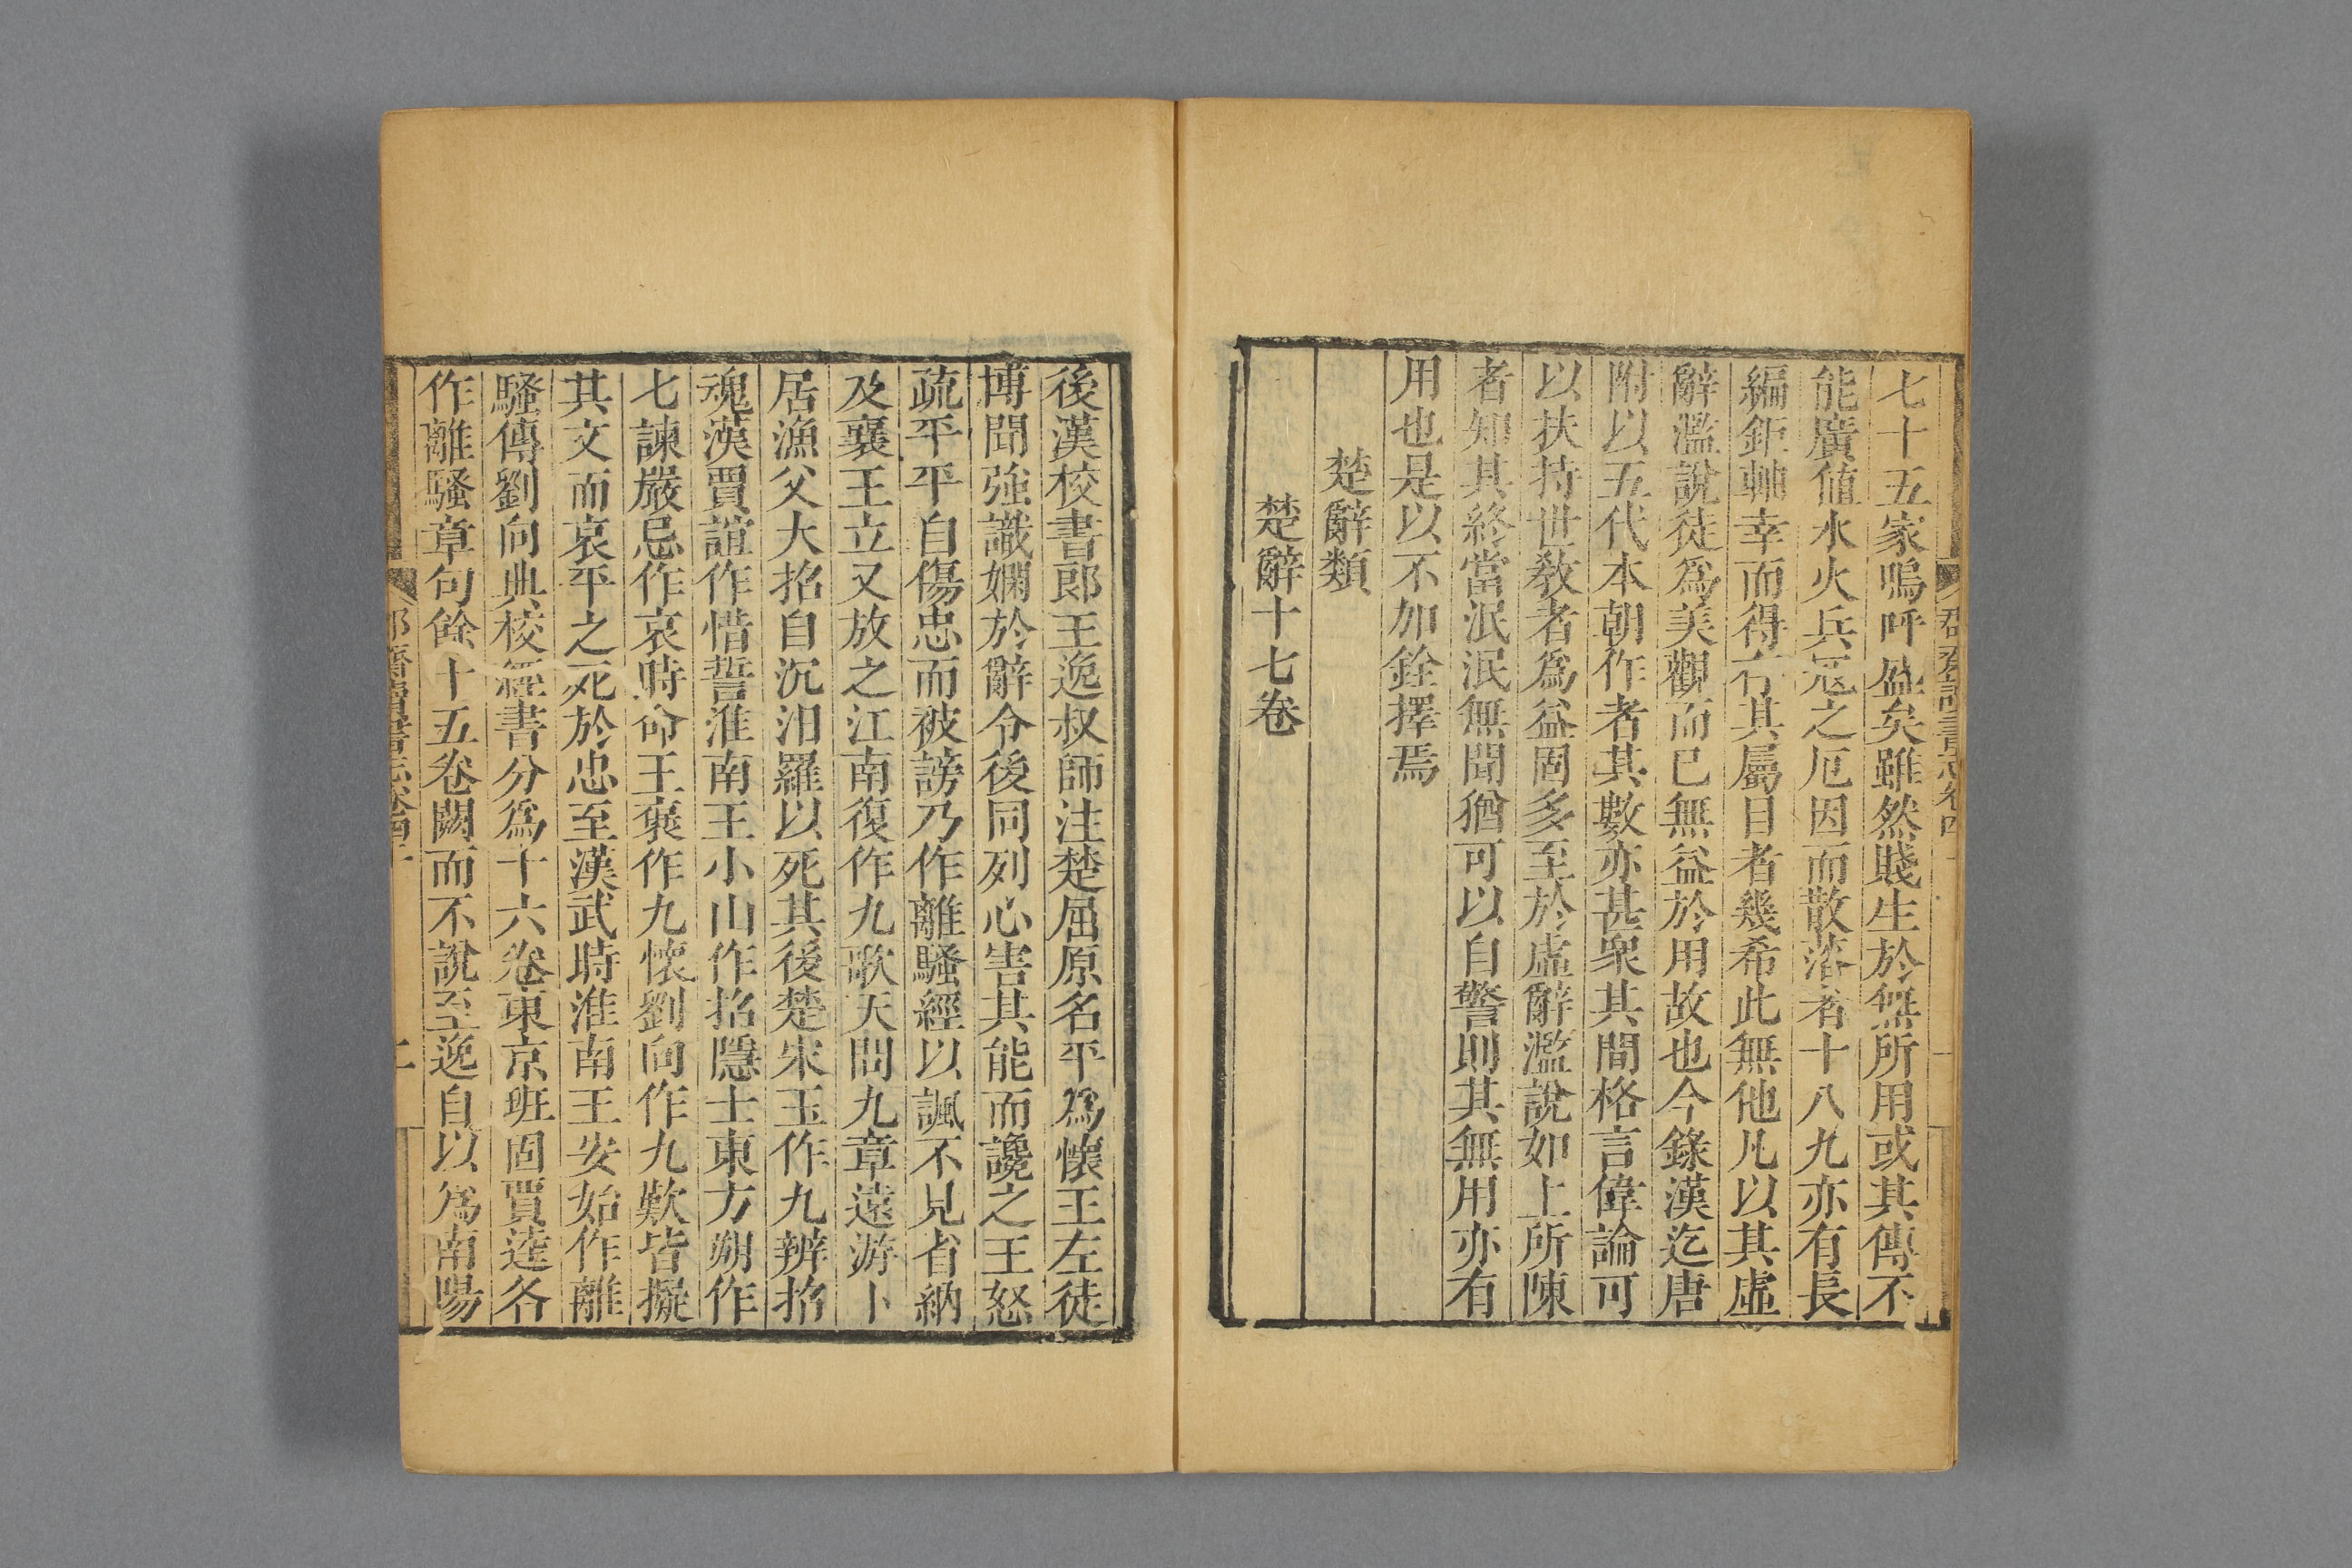 七十五家嗚呼盛矣雖然賤生於無所用或其傳不
能廣值水火兵寇之厄因而散落者十八九亦有長
編鉅軸幸而得存其屬目者幾希此無他凡以其虛
辭濫說徒爲美觀而已無益於用故也今錄漢迄唐
附以五代本朝作者其數亦甚衆其間格言偉論可
以扶持世敎者爲益固多至於虛辭濫說如上所陳
者知其終當泯泯無聞猶可以自警則其無用亦有
用也是以不加銓擇焉
楚辭類
楚辭十七卷
後漢校書郎王逸叔師注楚屈原名平爲懷王左徒
博聞強識嫻於辭令後同列心害其能而讒之王怒
疏平平自傷忠而被謗乃作離騷經以諷不見省納
及襄王立又放之江南復作九歌天問九章遠游卜
居漁父大招自沉汨羅以死其後楚宋玉作九辨招
魂漢賈誼作惜誓淮南王小山作招隱士東方朔作
七諫嚴忌作哀時命王褒作九懷劉向作九歎皆擬
其文而哀平之死於忠至漢武時淮南王安始作離
騷傳劉向典校經書分爲十六卷東京班固賈逵各
作離騷章句餘十五卷闕而不說至逸自以爲南陽